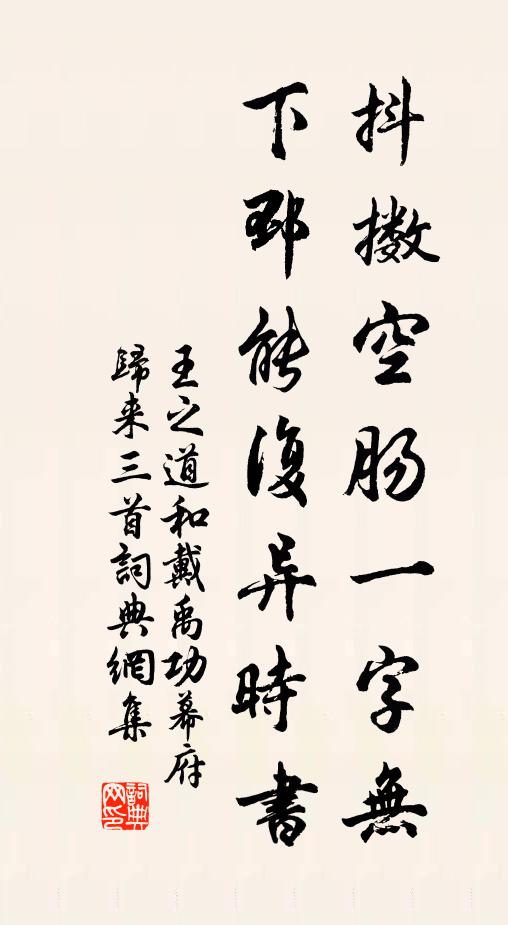 抖擞空肠一字無
下邳能復异時書
王之道和戴禹功幕府
歸来三首詞典網集
詞典网印